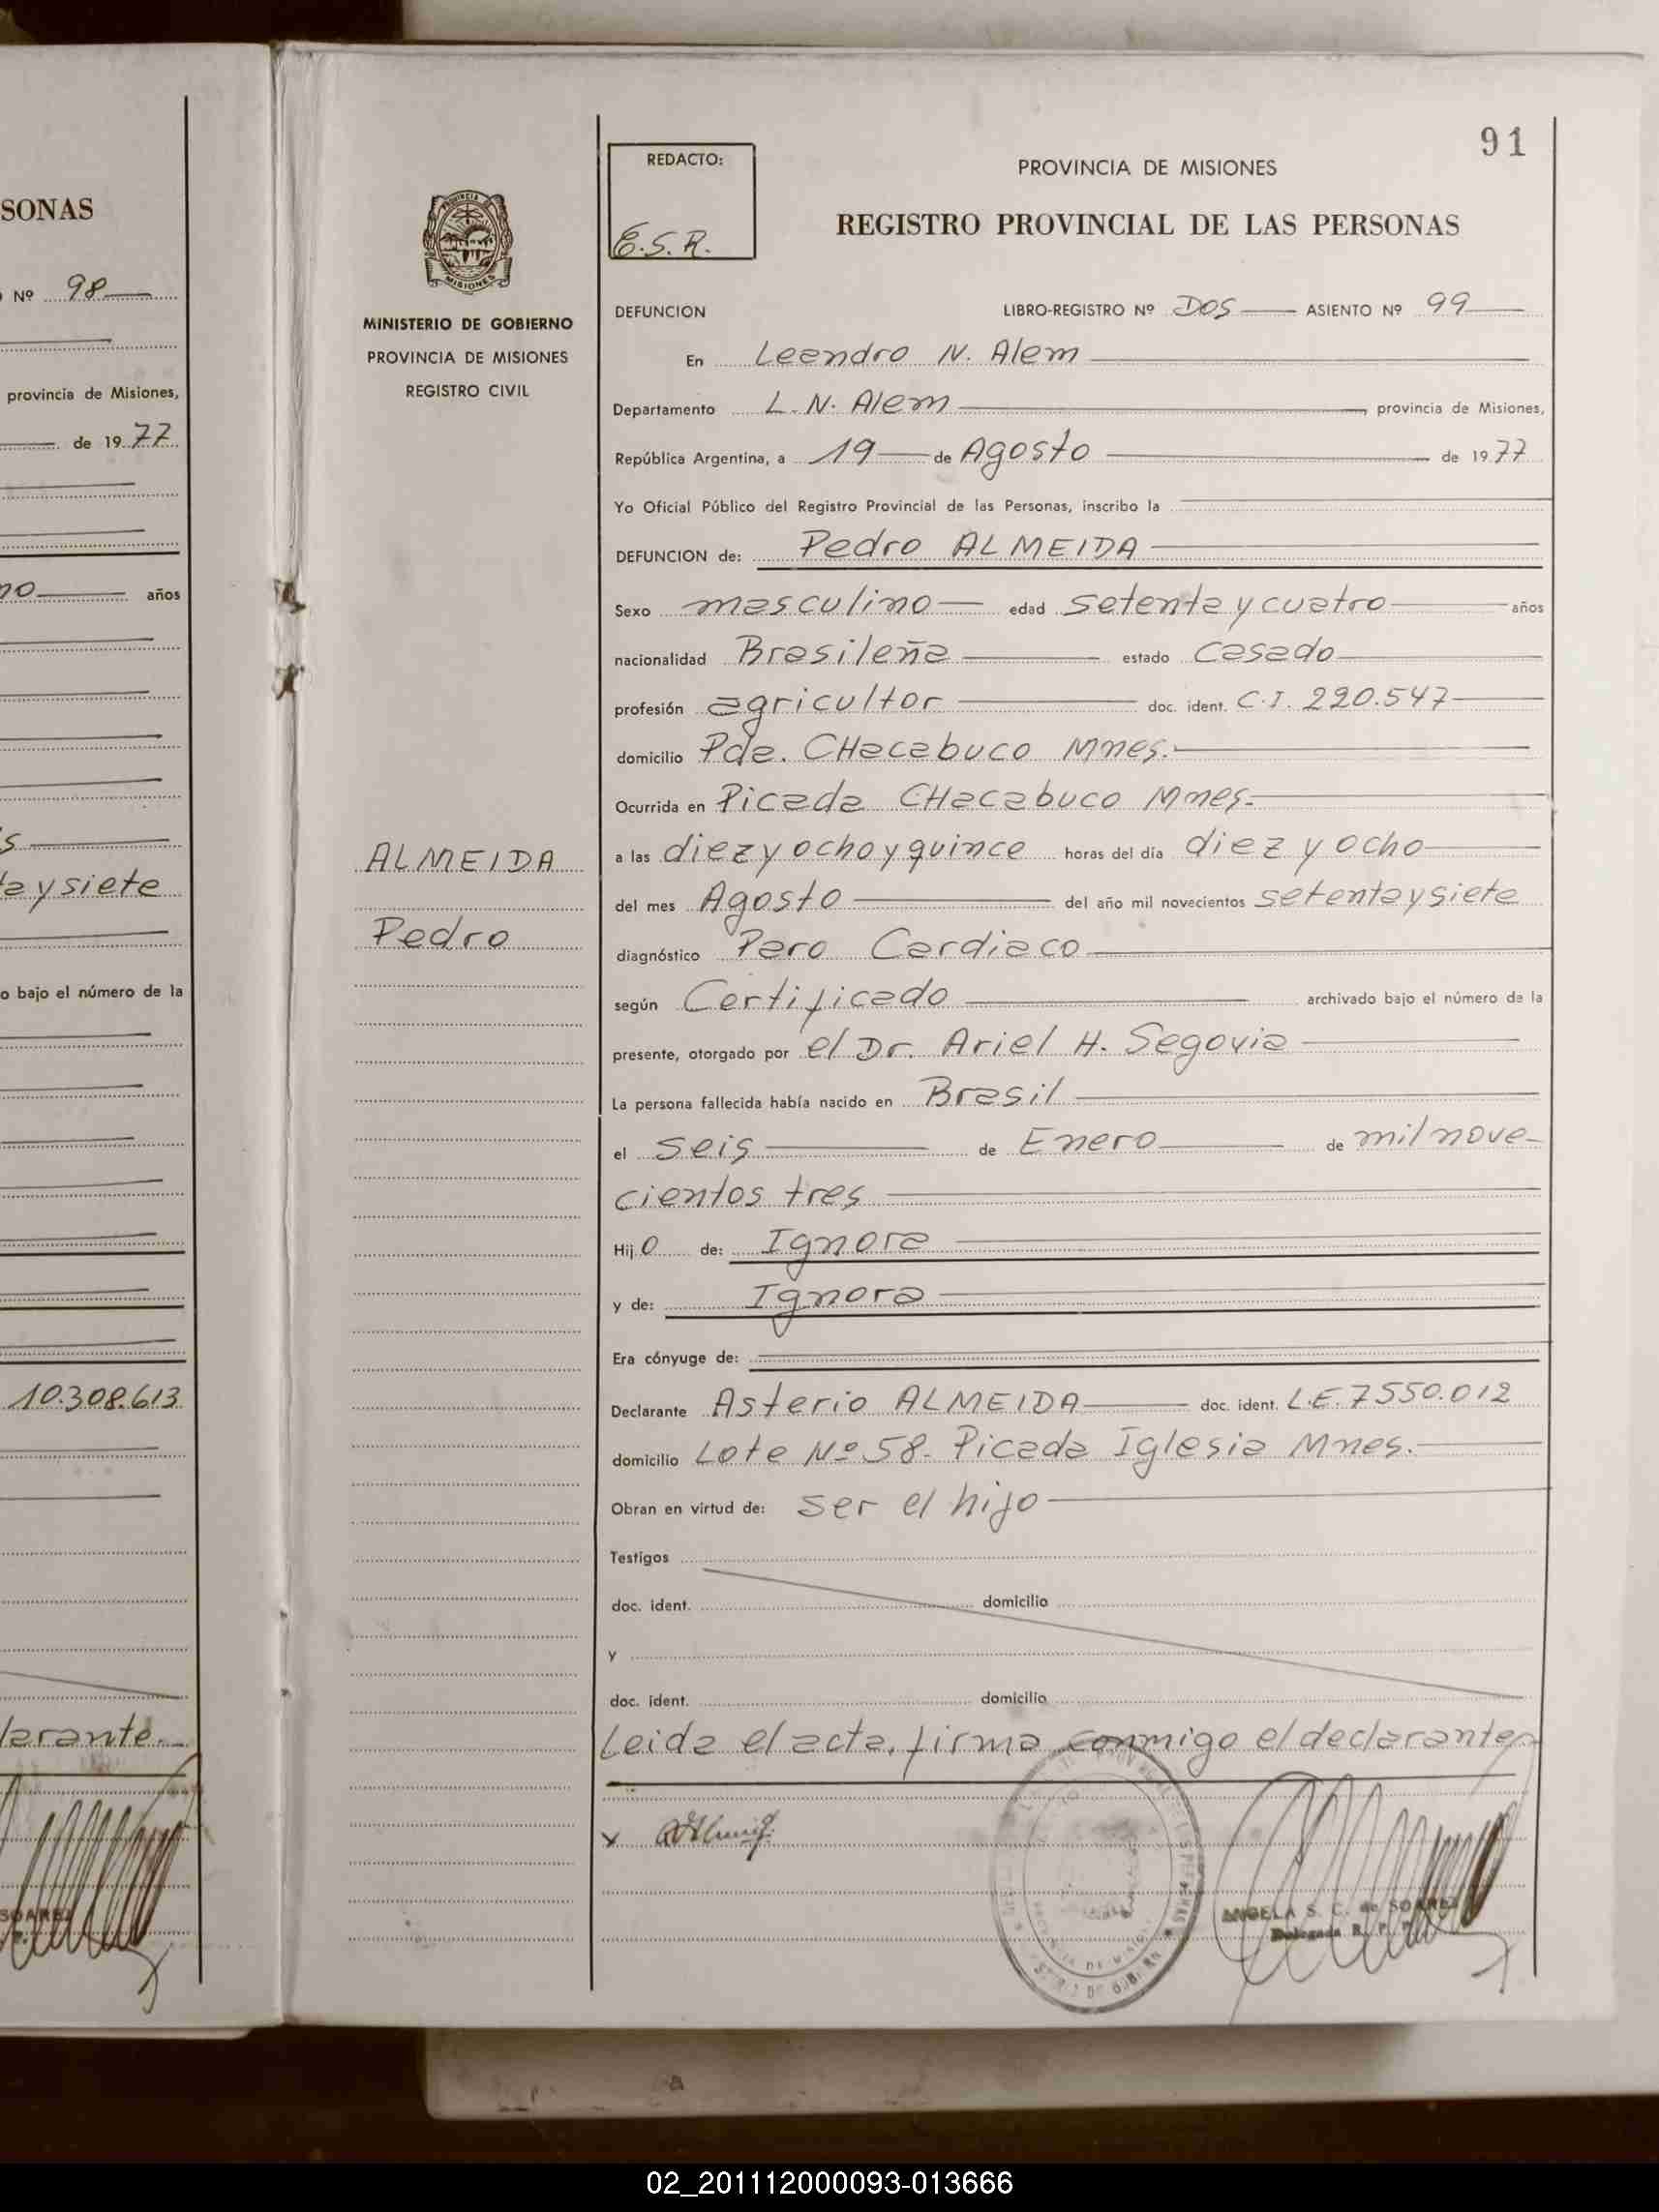 SONAS
Nº 98
provincia de Misiones,
de 19 77
años
ta y siete
o bajo el número de la
10.308.613
larante.
SOAREZ
91
REDACTO:
E.S.R.
PROVINCIA DE MISIONES
REGISTRO PROVINCIAL DE LAS PERSONAS
PROVINCIA
MISIONES
MINISTERIO DE GOBIERNO
PROVINCIA DE MISIONES
REGISTRO CIVIL
ALMEIDA
Pedro
DEFUNCION LIBRO-REGISTRO Nº DOS ASIENTO Nº 99
En Leandro N. Alem
Departamento L. N. Alem, provincia de Misiones,
República Argentina, a 19 de Agosto de 19 77
Yo Oficial Público del Registro Provincial de las Personas, inscribo la
DEFUNCION de: Pedro ALMEIDA
Sexo masculino edad setenta y cuatro años
nacionalidad Brasileña estado casado
profesión agricultor doc. ident. C.I. 220.547
domicilio Pda. CHacabuco Mnes.
Ocurrida en Picada CHacabuco Mnes.
a las diez y ocho y quince horas del día diez y ocho
del mes Agosto del año mil novecientos setenta y siete
diagnóstico Paro Cardiaco
según Certificado archivado bajo el número de la
presente, otorgado por el Dr. Ariel H. Segovia
La persona fallecida había nacido en Brasil
el seis de Enero de mil nove-
cientos tres
Hijo de: Ignora
y de: Ignora
Era cónyuge de:
Declarante Asterio ALMEIDA doc. ident. L.E. 7550.012
domicilio Lote Nº 58. Picada Iglesia Mnes.
Obran en virtud de: ser el hijo
Testigos
doc. ident. domicilio
y
doc. ident. domicilio
Leida el acta, firma conmigo el declarante
x
ANGELA S. C. de SOAREZ
Delegada R. P. P.
02_201112000093-013666